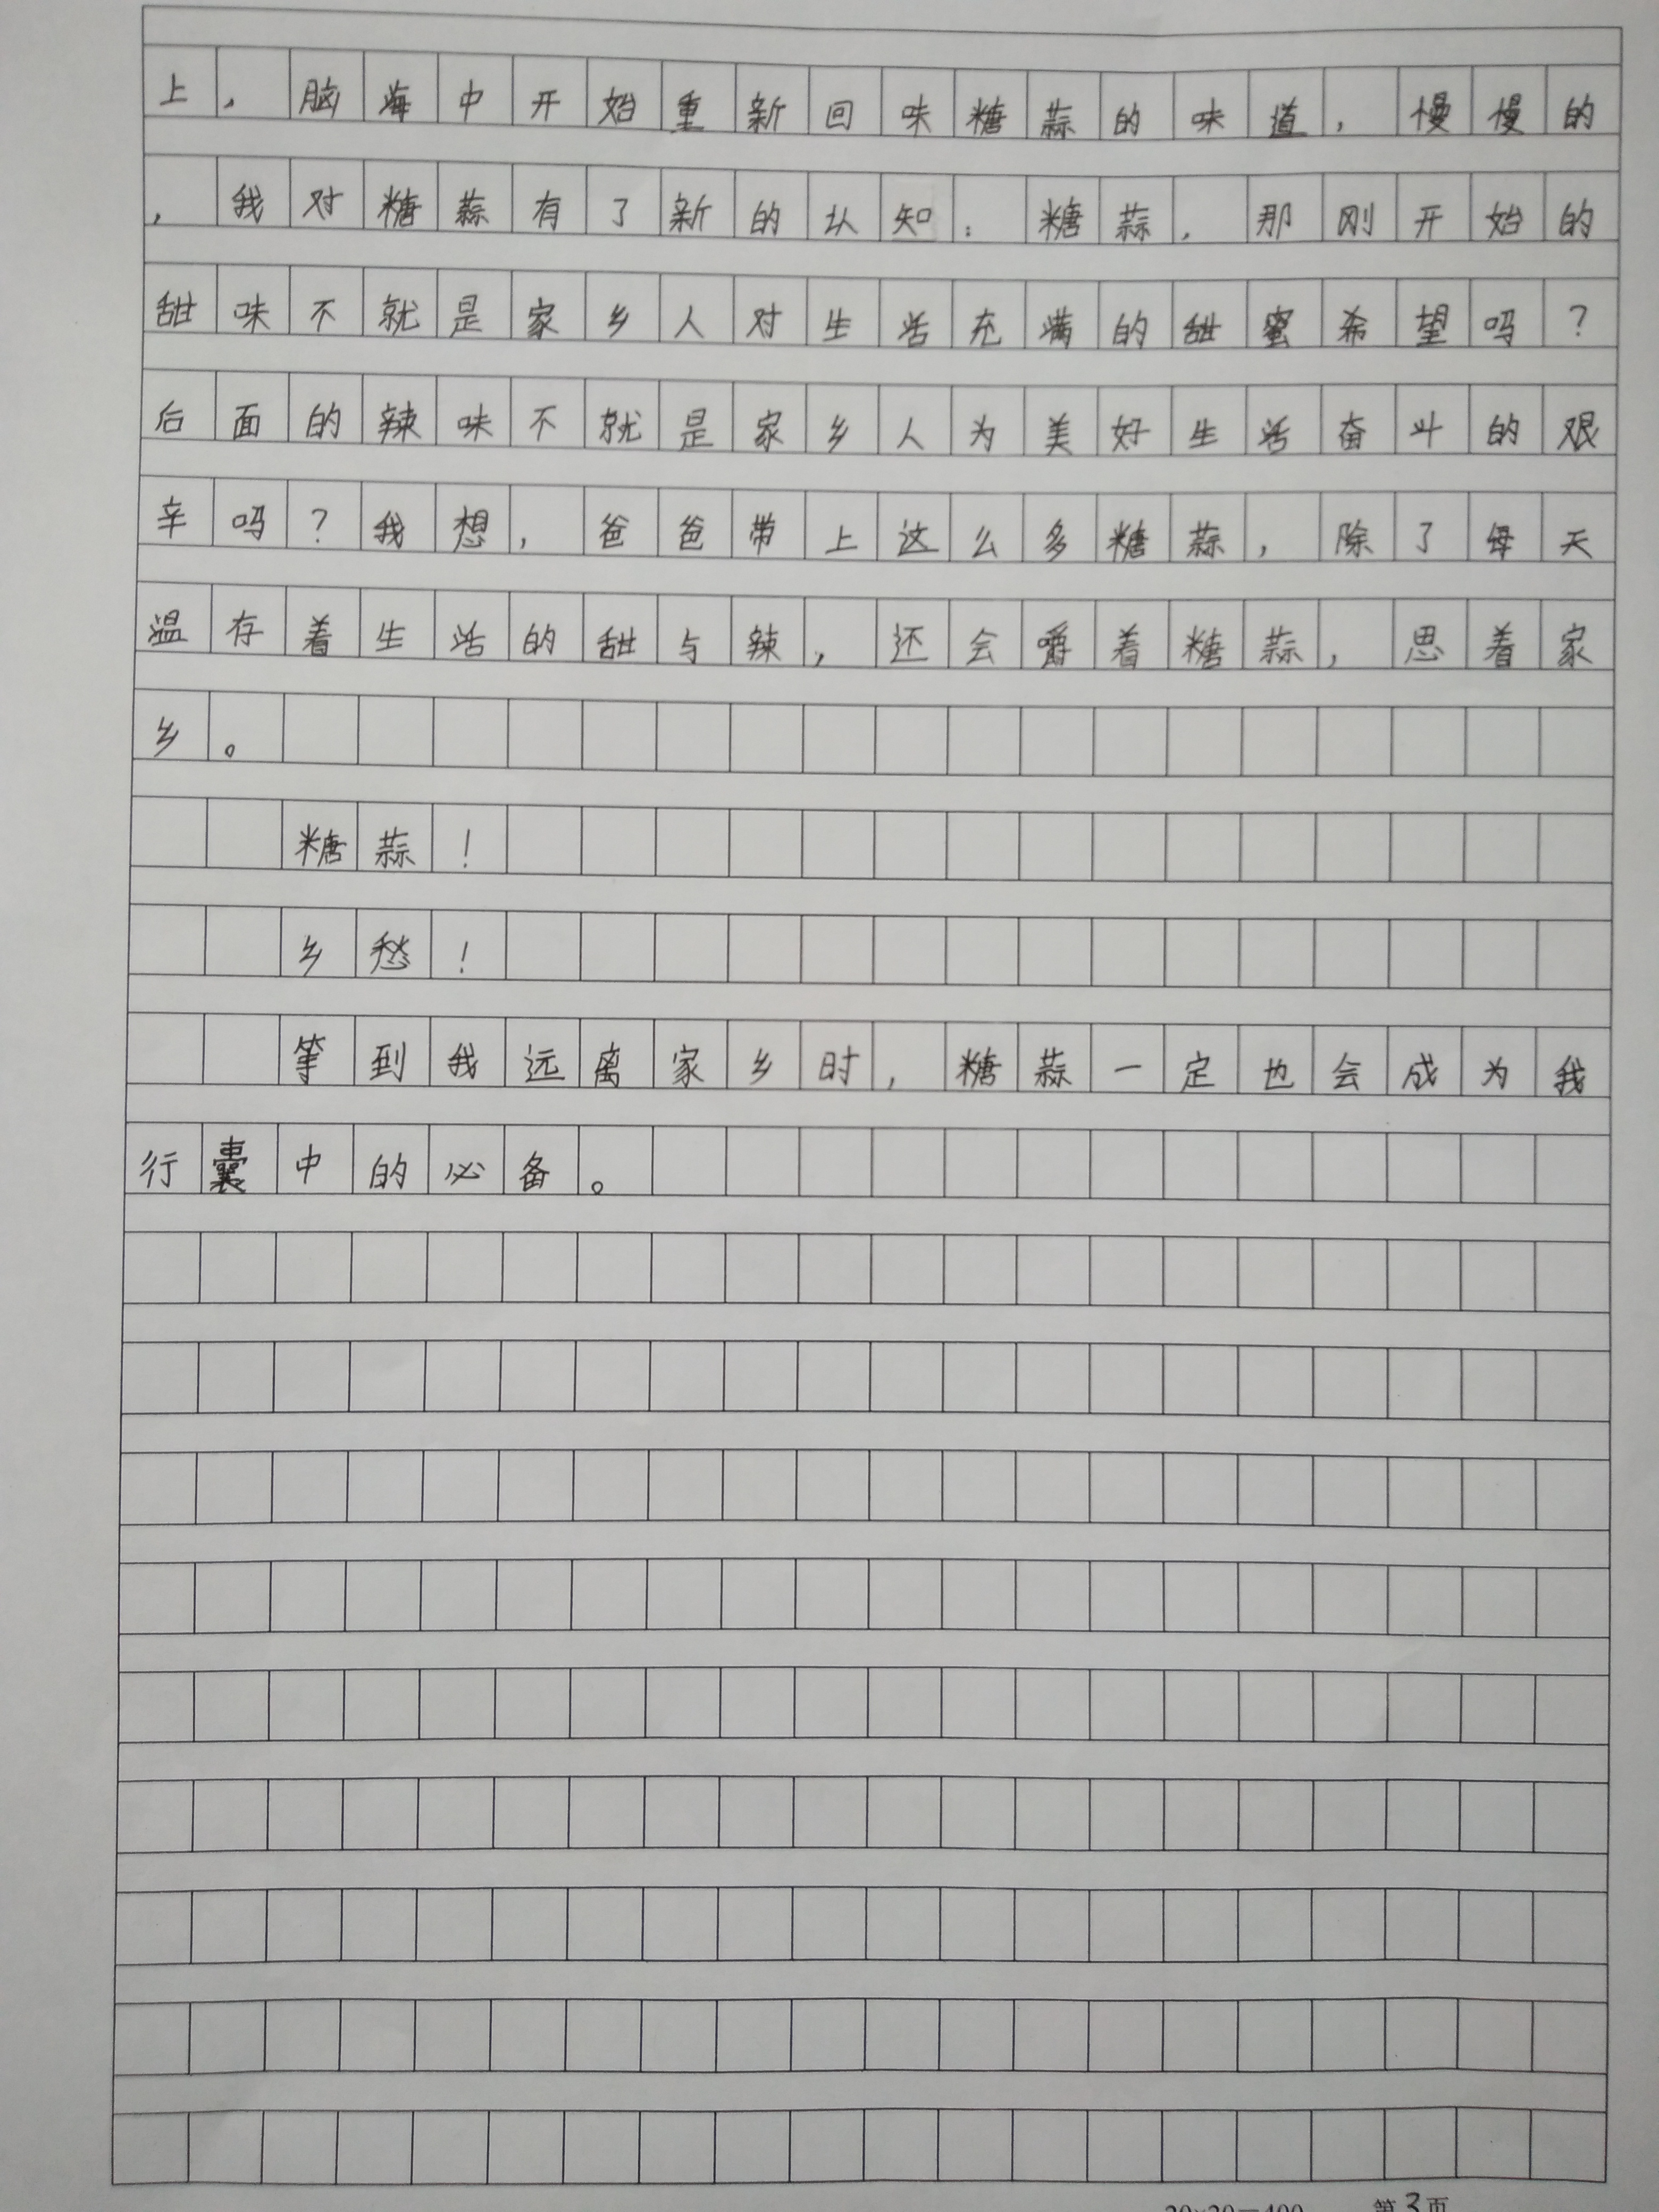 上，脑海中开始重新回味糖蒜的味道，慢慢的
，我对糖蒜有了新的认知：糖蒜，那刚开始的
甜味不就是家乡人对生活充满的甜蜜希望吗？
后面的辣味不就是家乡人为美好生活奋斗的艰
辛吗？我想，爸爸带上这么多糖蒜，除了每天
温存着生活的甜与辣，还会嚼着糖蒜，思着家
乡。
糖蒜！
乡愁！
等到我远离家乡时，糖蒜一定也会成为我
行囊中的必备。
20×20=400 第3页